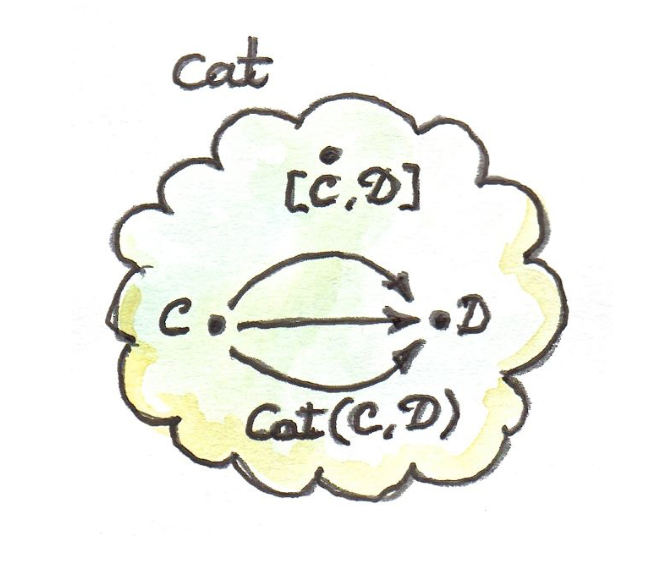 Cat
[C, D]
C
D
Cat(C, D)